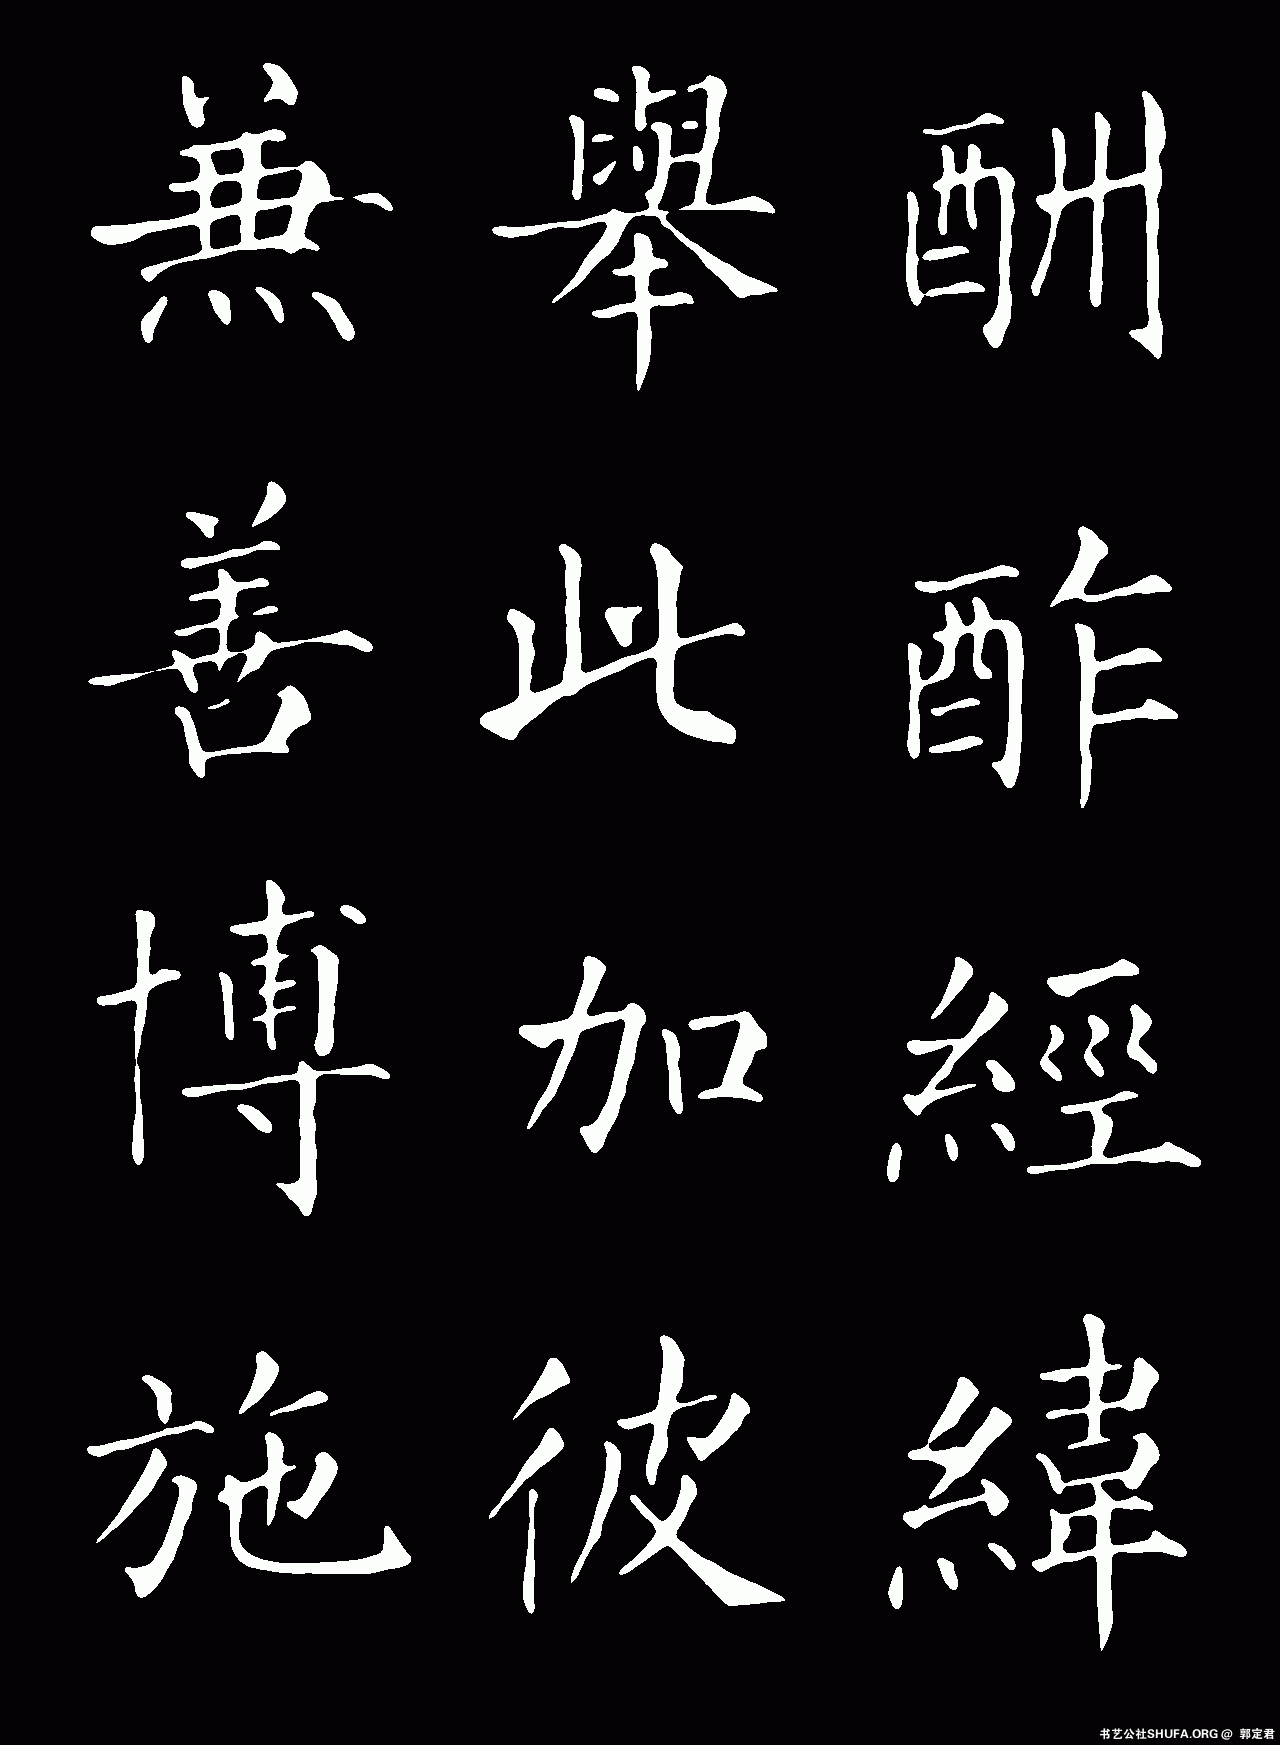 酬酢經緯
舉此加彼
兼善博施
书艺公社SHUFA.ORG @ 郭定君